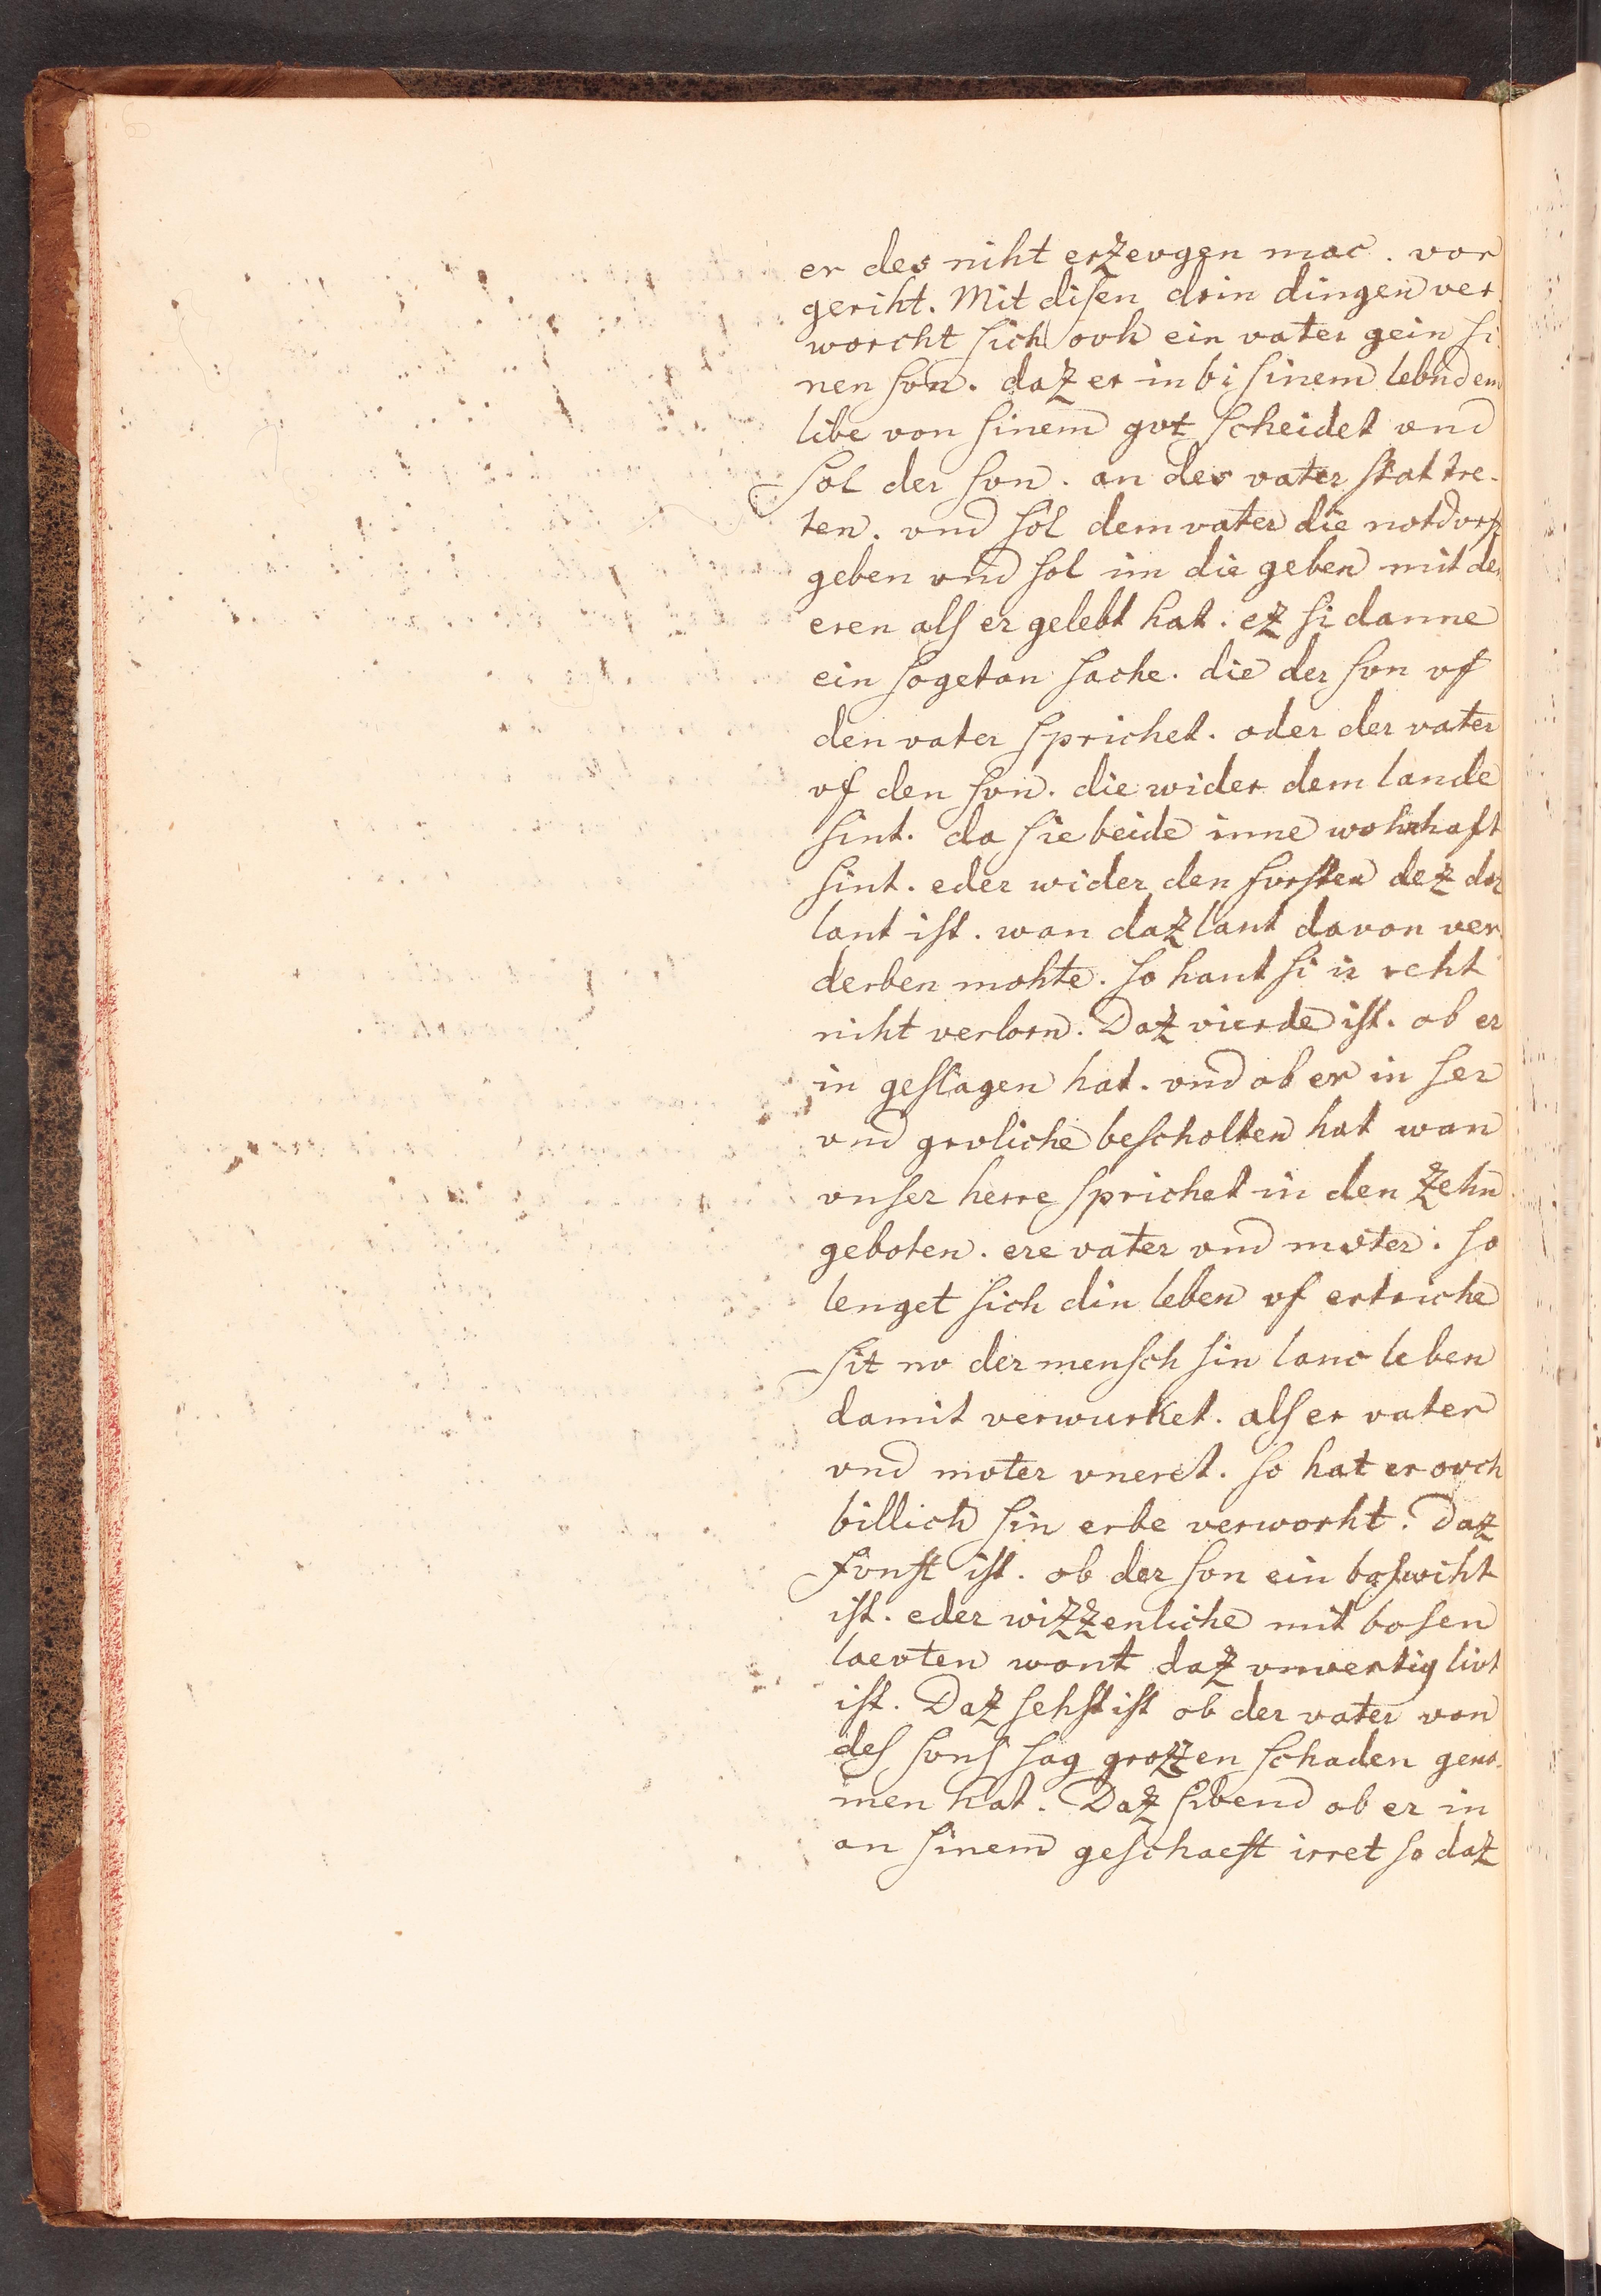 er des niht erzevgen mac. vor
geriht. Mit disen drin dingen ver
worcht sich ovh ein vater gein si
nen svn. daz er in bi sinem lebnden
libe von sinem gvt scheidet vnd
Sol der svn. an des vater stat tre-
ten. vnd sol dem vater die notdvrft
geben vnd sol im die geben mit den
eren als er gelebt hat. ez si danne
ein sogetan sache. die der svn vf
den vater sprichet. oder der vater
vf den svn. die wider dem lande
sint. da sie beide inne wohnhaft
sint. eder wider den fvrsten dez daz
lant ist. wan daz lant davon ver
derben mohte. so hant si ir reht
niht verlorn. Daz vierde ist. ob er
in geslagen hat. vnd ob er in ser
vnd grvliche bescholten hat wan
vnser herre sprichet in den zehn
geboten. ere vater vnd mvter. so
lenget sich din leben vf ertriche
Sit nv der mensch sin lanc leben
damit verwurket. als er vater
vnd mvter vneret. so hat er ovch
billich sin erbe verworht. Daz
fvnft ist. ob der svn ein boswiht
ist. eder wizzenliche mit bosen
laevten wont daz vnvertig livt
ist. Daz sehst ist ob der vater von
des svns sag grozzen schaden geno-
men hat. Daz sibend ob er in
an sinem geschaeft irret so daz